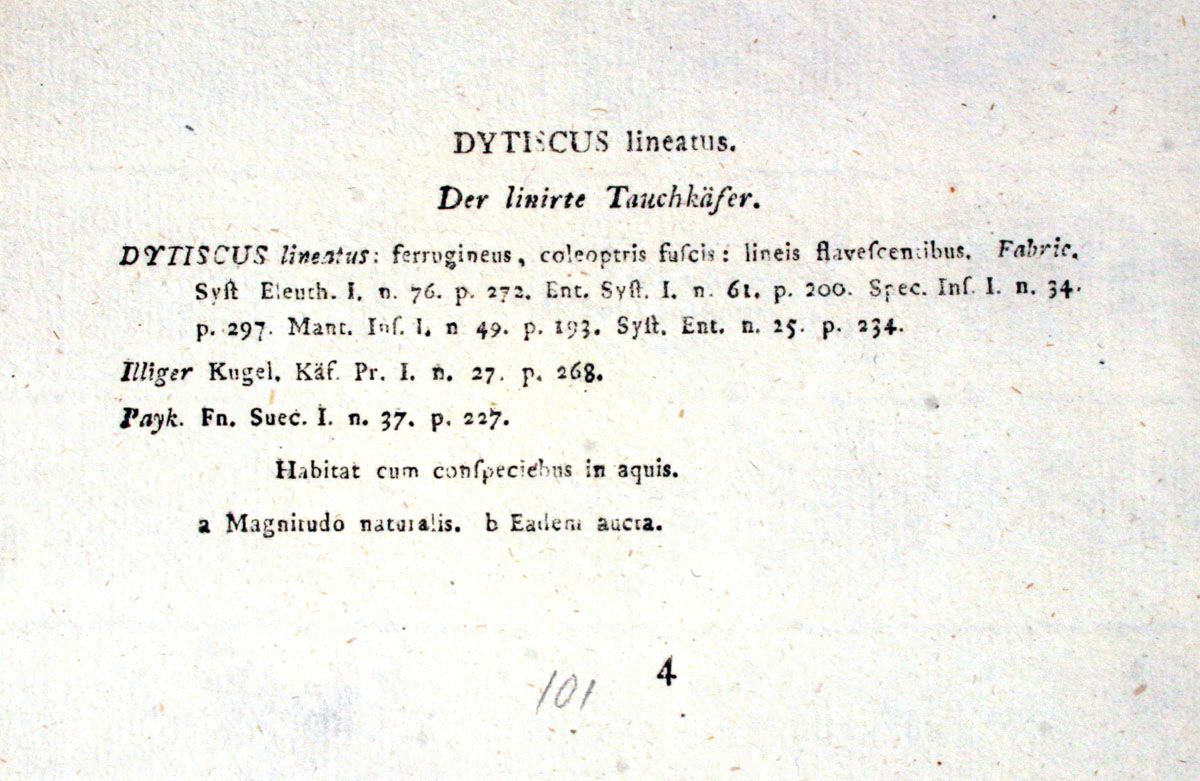 DYTISCUS lineatus.
Der linirte Tauchkäfer.
DYTISCUS lineatus: ferrugineus, coleoptris fuſcis: lineis flaveſcentibus. Fabric.
Syſt Eleuth. I. n. 76. p. 272. Ent. Syſt. I. n. 61. p. 200. Spec. Inſ. I. n. 34.
p. 297. Mant. Inſ. I. n 49. p. 193. Syſt. Ent. n. 25. p. 234.
Illiger Kugel. Käf. Pr. I. n. 27. p. 268.
Payk. Fn. Suec. I. n. 37. p. 227.
Habitat cum conſpeciebus in aquis.
a Magnitudo naturalis. b Eadem aucta.
4
101